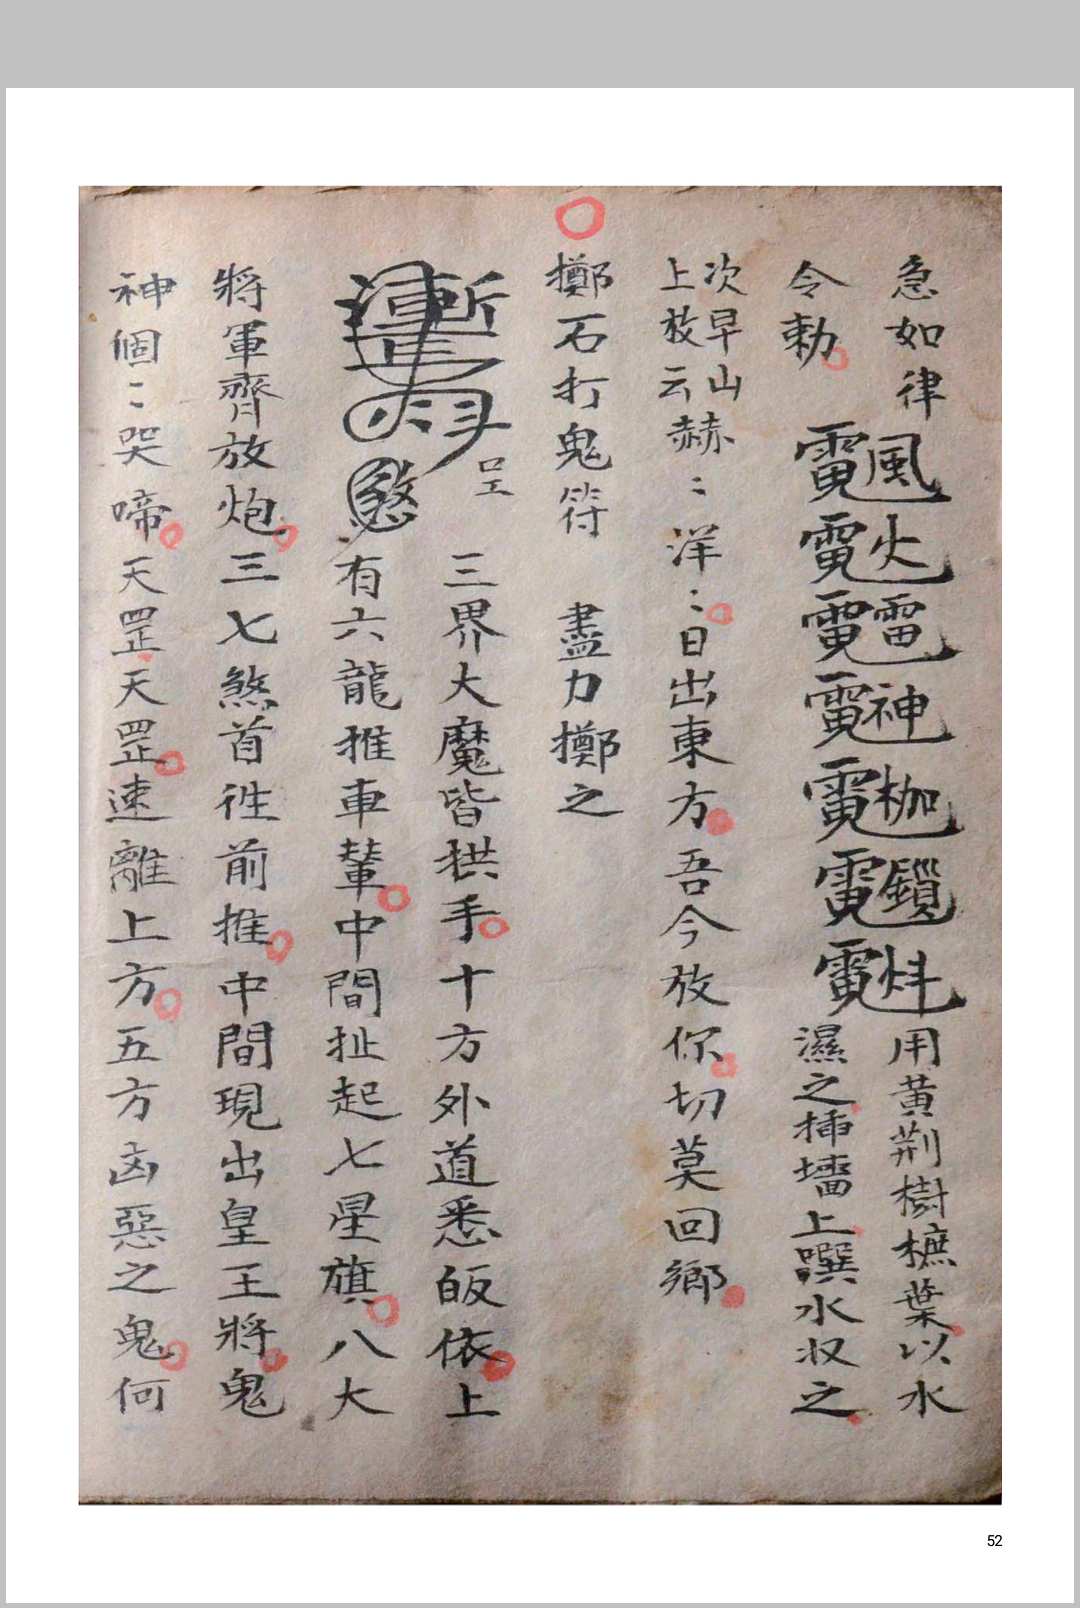 急如律
令勅
用黃荆樹樜葉以水
濕之揷墻上噀水収之
次早山
上放云
赫:洋:日出東方吾今放你切莫回鄉
擲石打鬼符 盡力擲之
三界大魔皆拱手十方外道悉皈依上
有六龍推車輦中間扯起七星旗八大
將軍齊放炮三七煞首徃前推中間現出皇王將鬼
神個:哭啼天罡天罡速離上方五方凶惡之鬼何
52